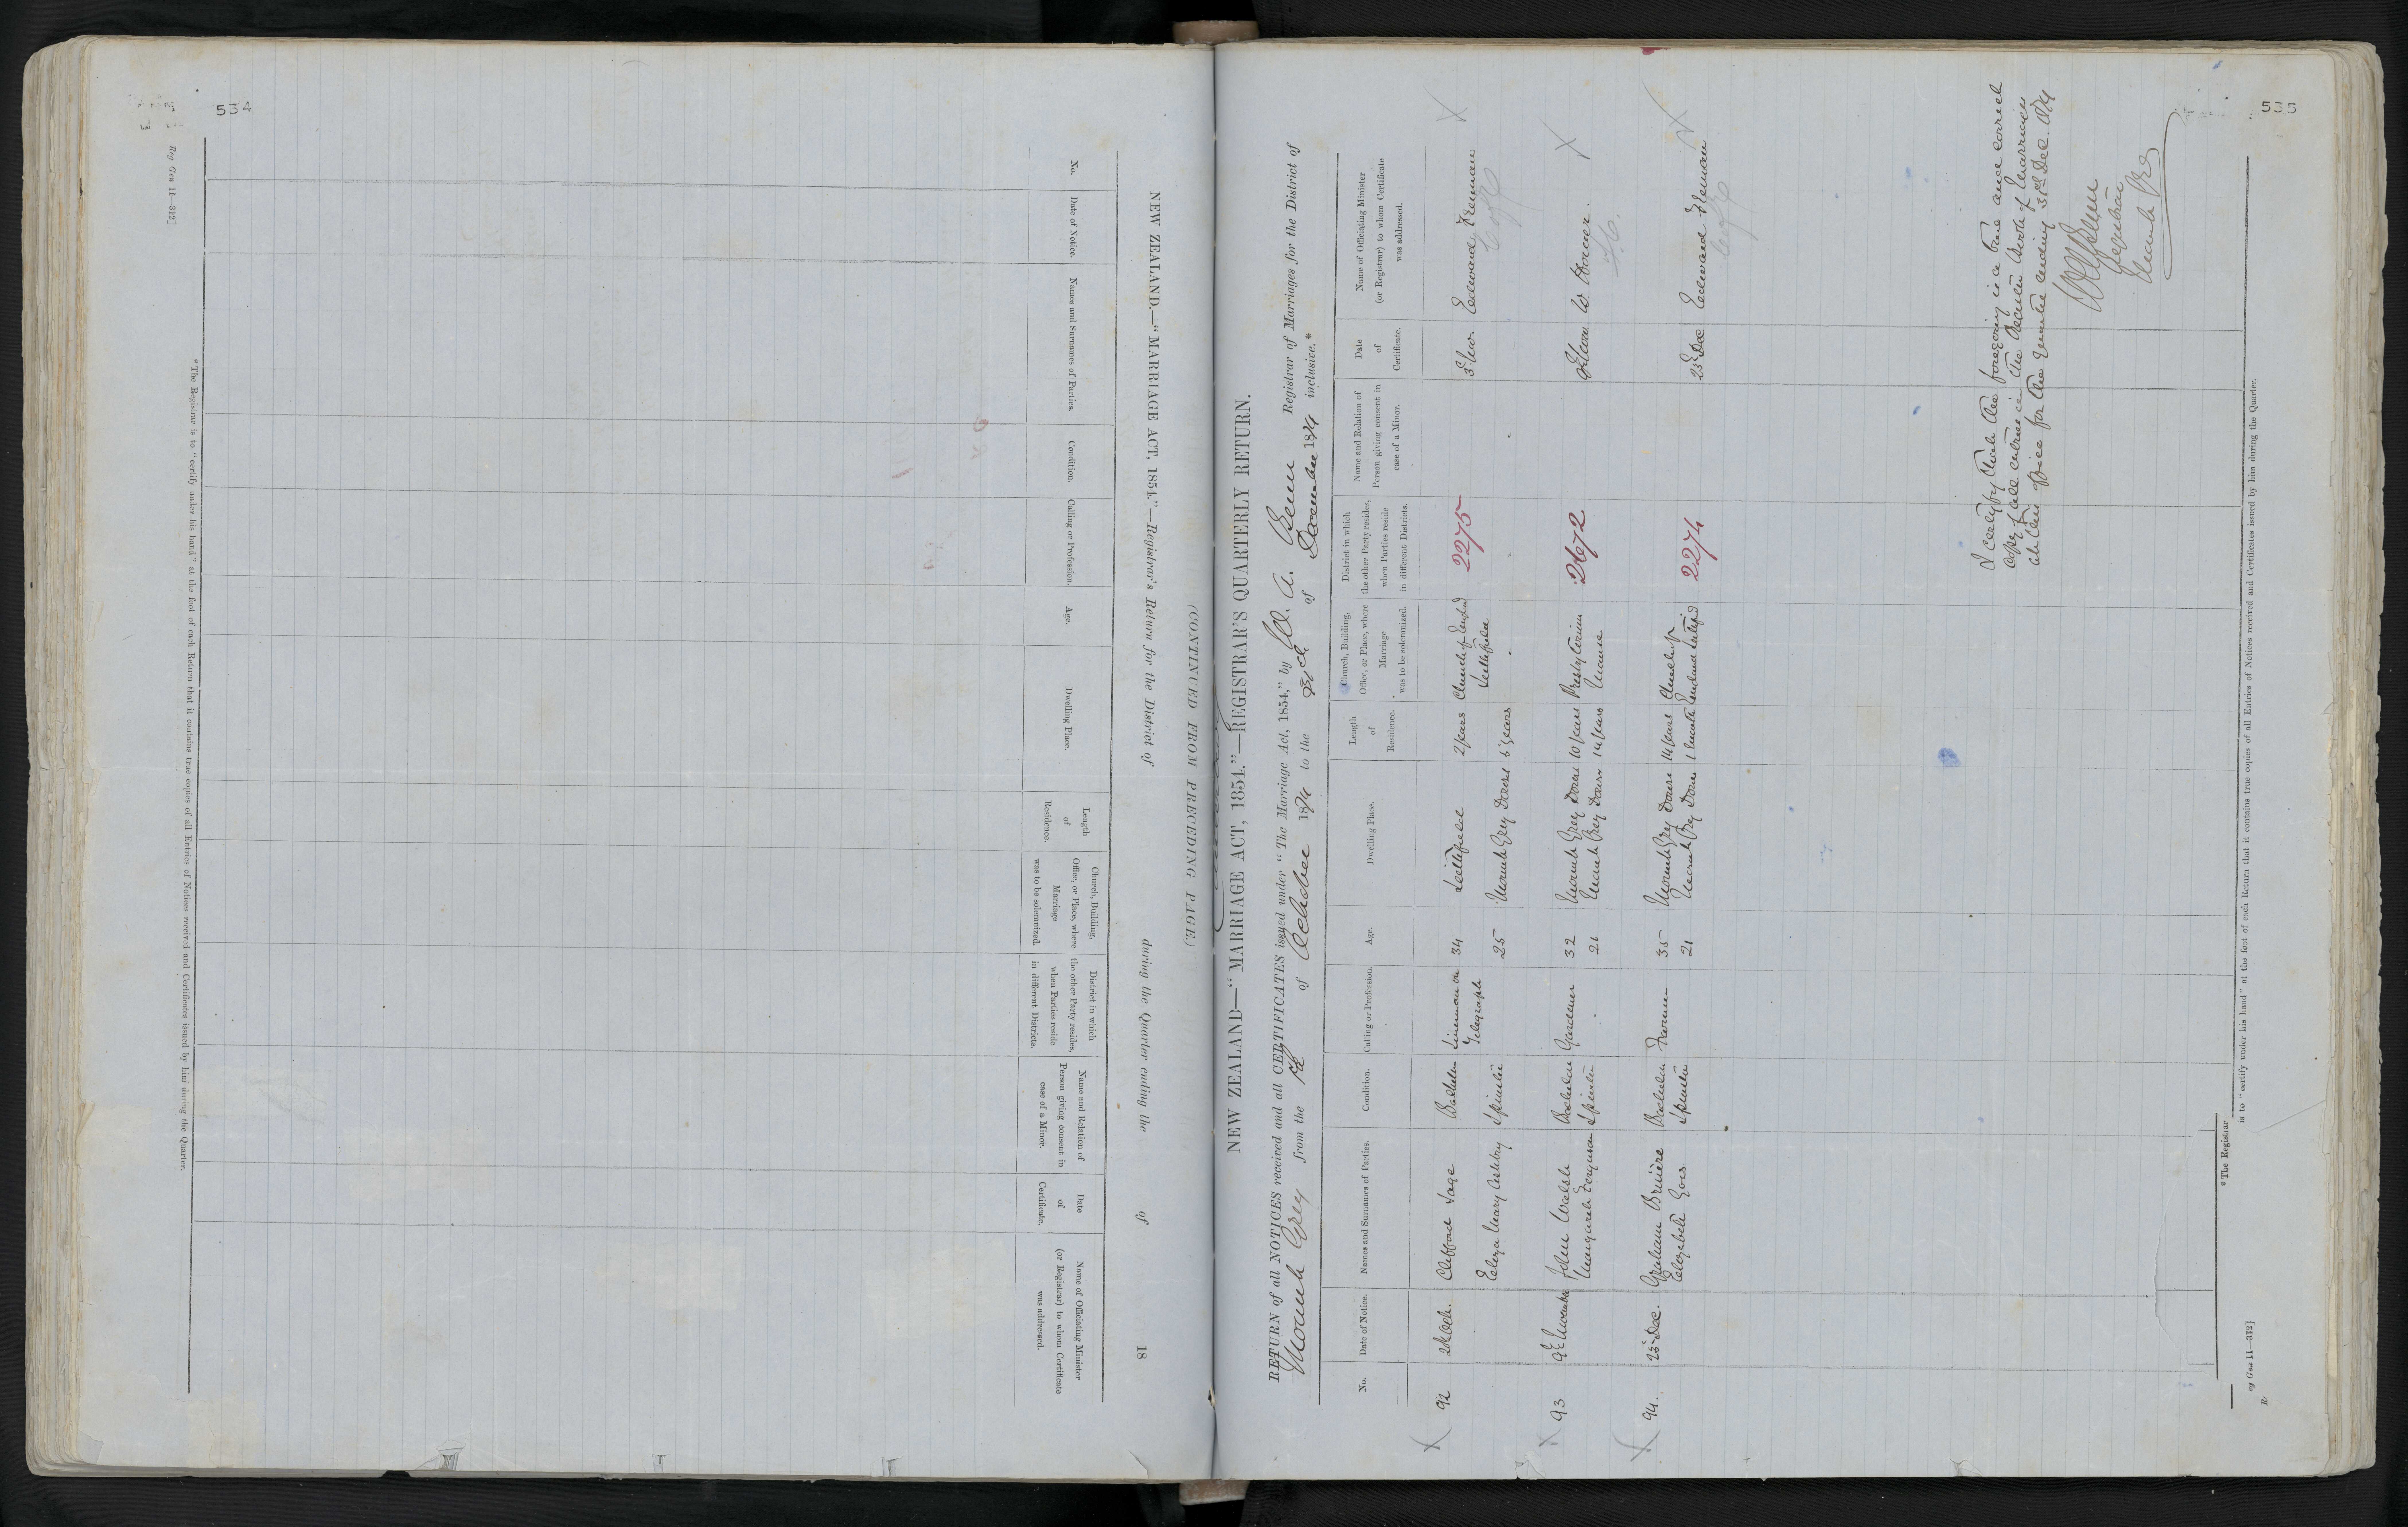 534
Reg Gen 11—312]
NEW ZEALAND.—"MARRIAGE ACT, 1854."—Registrar's Return for the District of during the Quarter ending the of 18
(CONTINUED FROM PRECEDING PAGE.)
No.
Date of Notice.
Names and Surnames of Parties.
Condition.
Calling or Profession.
Age.
Dwelling Place.
Length
of
Residence.
Church, Building,
Office, or Place, where
Marriage
was to be solemnized.
District in which
the other Party resides,
when Parties reside
in different Districts.
Name and Relation of
Person giving consent in
case of a Minor.
Date
of
Certificate.
Name of Officiating Minister
(or Registrar) to whom Certificate
was addressed.
*The Registrar is to "certify under his hand" at the foot of each Return that it contains true copies of all Entries of Notices received and Certificates issued by him during the Quarter.
535
NEW ZEALAND—"MARRIAGE ACT, 1854."—REGISTRAR'S QUARTERLY RETURN.
RETURN of all NOTICES received and all CERTIFICATES issued under "The Marriage Act, 1854," by W. A. Registrar of Marriages for the District of
Mount Grey from the 1st of October 1874 to the 31st of December 1874 inclusive.*
No.
Date of Notice.
Names and Surnames of Parties.
Condition.
Calling or Profession.
Age.
Dwelling Place.
Length
of
Residence.
Church, Building,
Office, or Place, where
Marriage
was to be solemnized.
District in which
the other Party resides,
when Parties reside
in different Districts.
Name and Relation of
Person giving consent in
case of a Minor.
Date
of
Certificate.
Name of Officiating Minister
(or Registrar) to whom Certificate
was addressed.
X 92 Oct. Clifford Bachelor Lineman on 34 Leithfield 2 years Church of England 2275 3 Nov Edward X
Telegraph Leithfield C of E
Eliza Mary Spinster 25 Mount Grey Downs 5 years
X 93 9 November John Walsh Bachelor Gardener 32 Mount Grey Downs 10 years Presbyterian 2672 9 Nov W. X
Margaret Ferguson Spinster 21 Mount Grey Downs 14 years Manse
X 94. 23 Dec. Graham Bruière Bachelor Farmer 35 Mount Grey Downs 14 years Church of 2274 23 Dec Edward X
Elizabeth Spinster 21 Mount Grey Downs 1 month England C of E
I certify that the foregoing is a true and correct
copy of all entries in the Records Book of Marriages
at this office for the quarter ending 31st Dec. 1874
Registrar
Mount Grey
*The Registrar is to "certify under his hand" at the foot of each Return that it contains true copies of all Entries of Notices received and Certificates issued by him during the Quarter.
Gen 11—312]